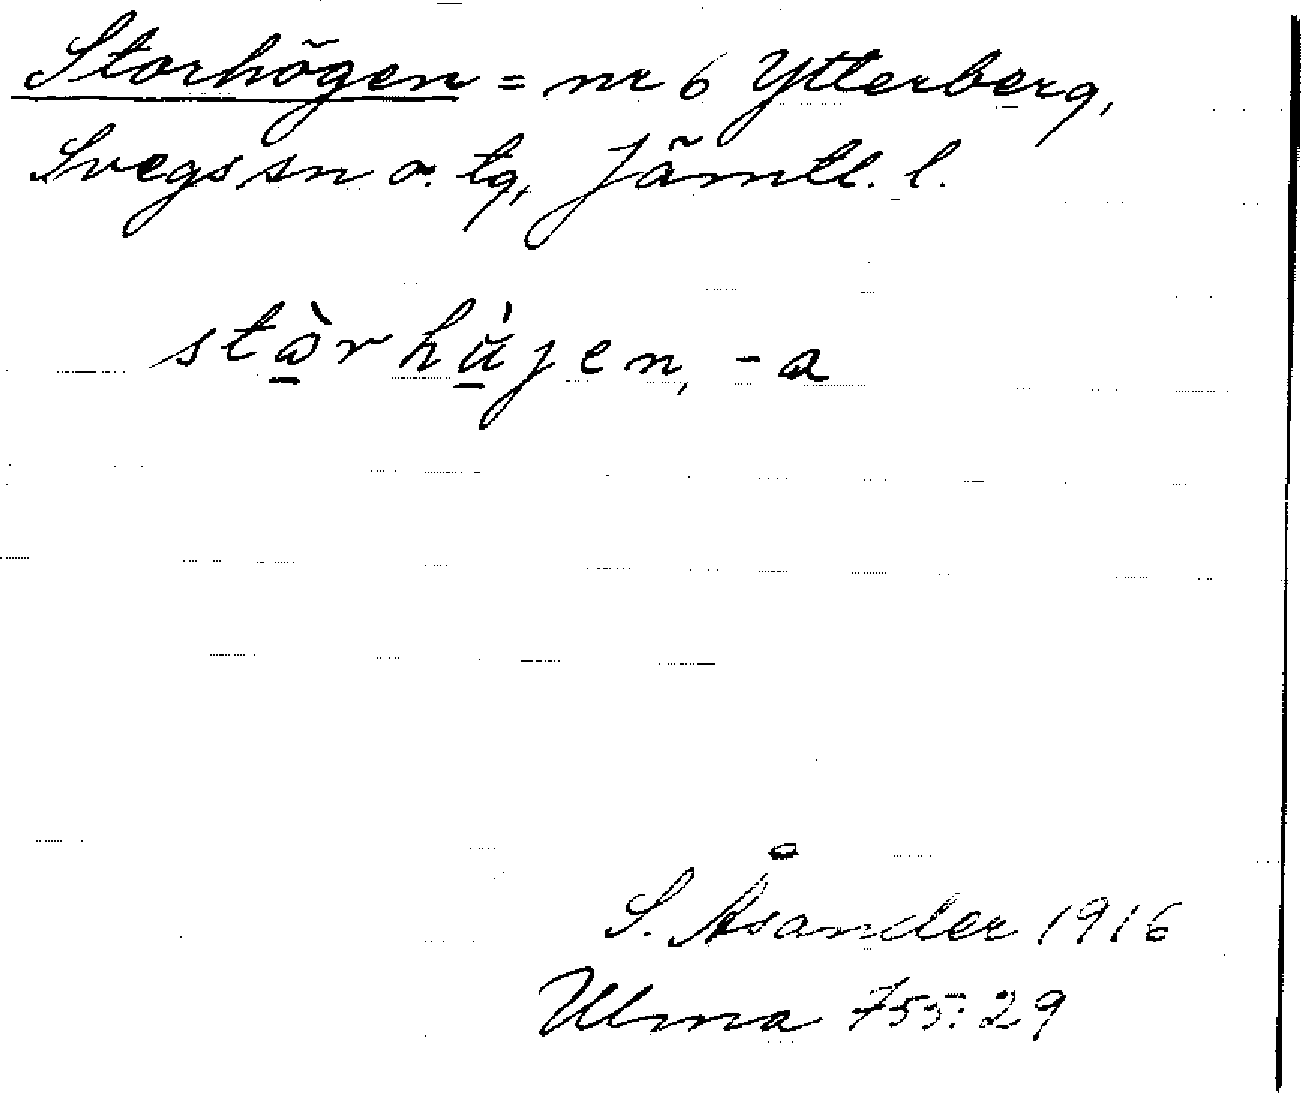 Storhögen = nr 6 Ytterberg,
Svegs sn o. tg, Jämtl. l.
stòrhàjen, -a
S. Åsander 1916
Ulma 755:29